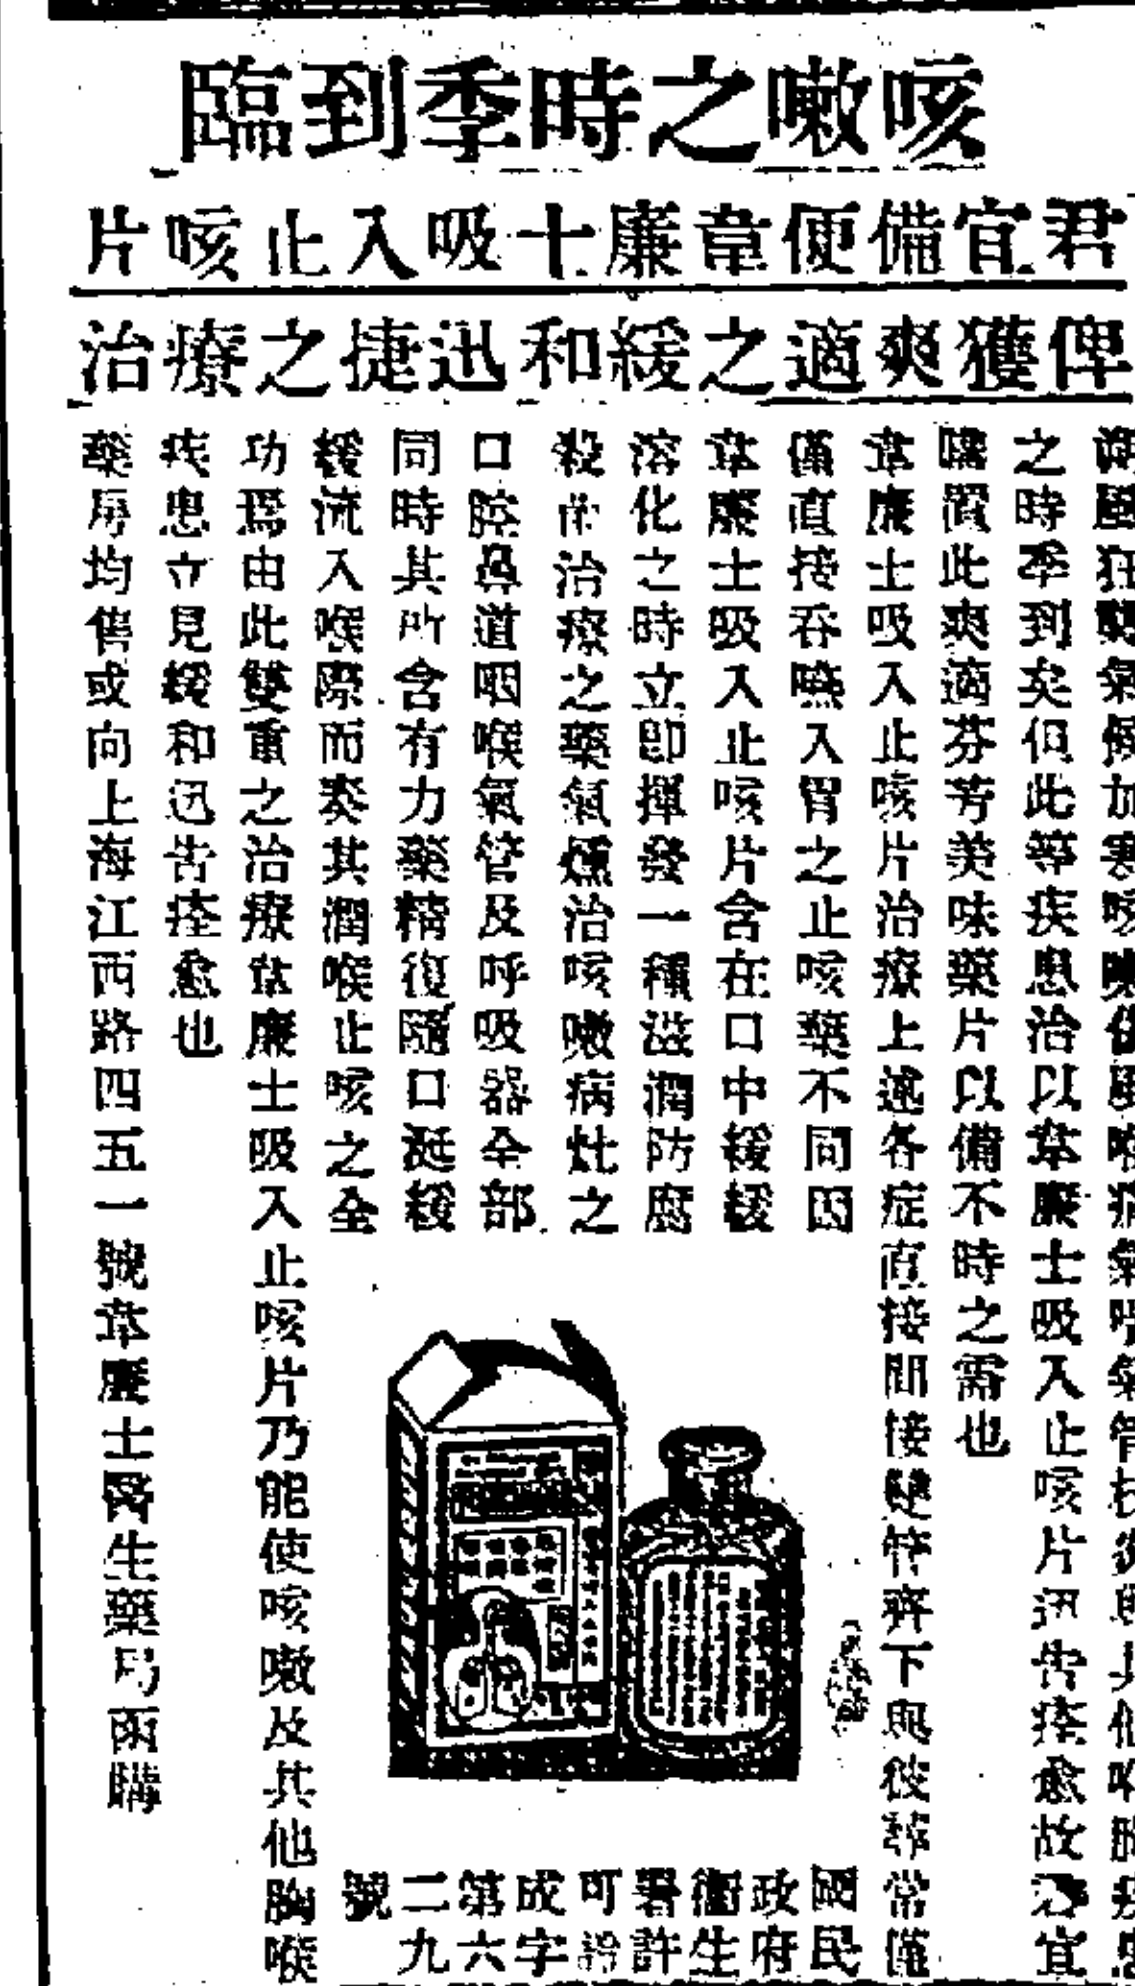 咳嗽之時季到臨
君宜備便韋廉士吸入止咳片
俾獲爽適之緩和迅捷之療治
狂 氣候加寒咳嗽傷風喉痛氣喘氣管枝炎與其他
之時季到矣但此等疾患治以韋廉士吸入止咳片迅告痊愈故 宜
購置此爽適芬芳美味藥片以備不時之需也
韋廉士吸入止咳片治療上述各症直接間接雙管齊下與彼尋常僅
僅直接吞嚥入胃之止咳藥不同因
韋廉士吸入止咳片含在口中緩緩
溶化之時立卽揮發一種滋潤防腐
殺菌治療之藥氣燻治咳嗽病灶之
口腔鼻道咽喉氣管及呼吸器全部
同時其所含有力藥精復隨口涎緩
緩流入喉際而奏其潤喉止咳之全
功焉由此雙重之治療韋廉士吸入止咳片乃能使咳嗽及其他胸喉
疾患立見緩和迅告痊愈也
藥房均售或向上海江西路四五一號韋廉士醫生藥局函購
國民
政府
衞生
署許
可
成字
第六
二九
號